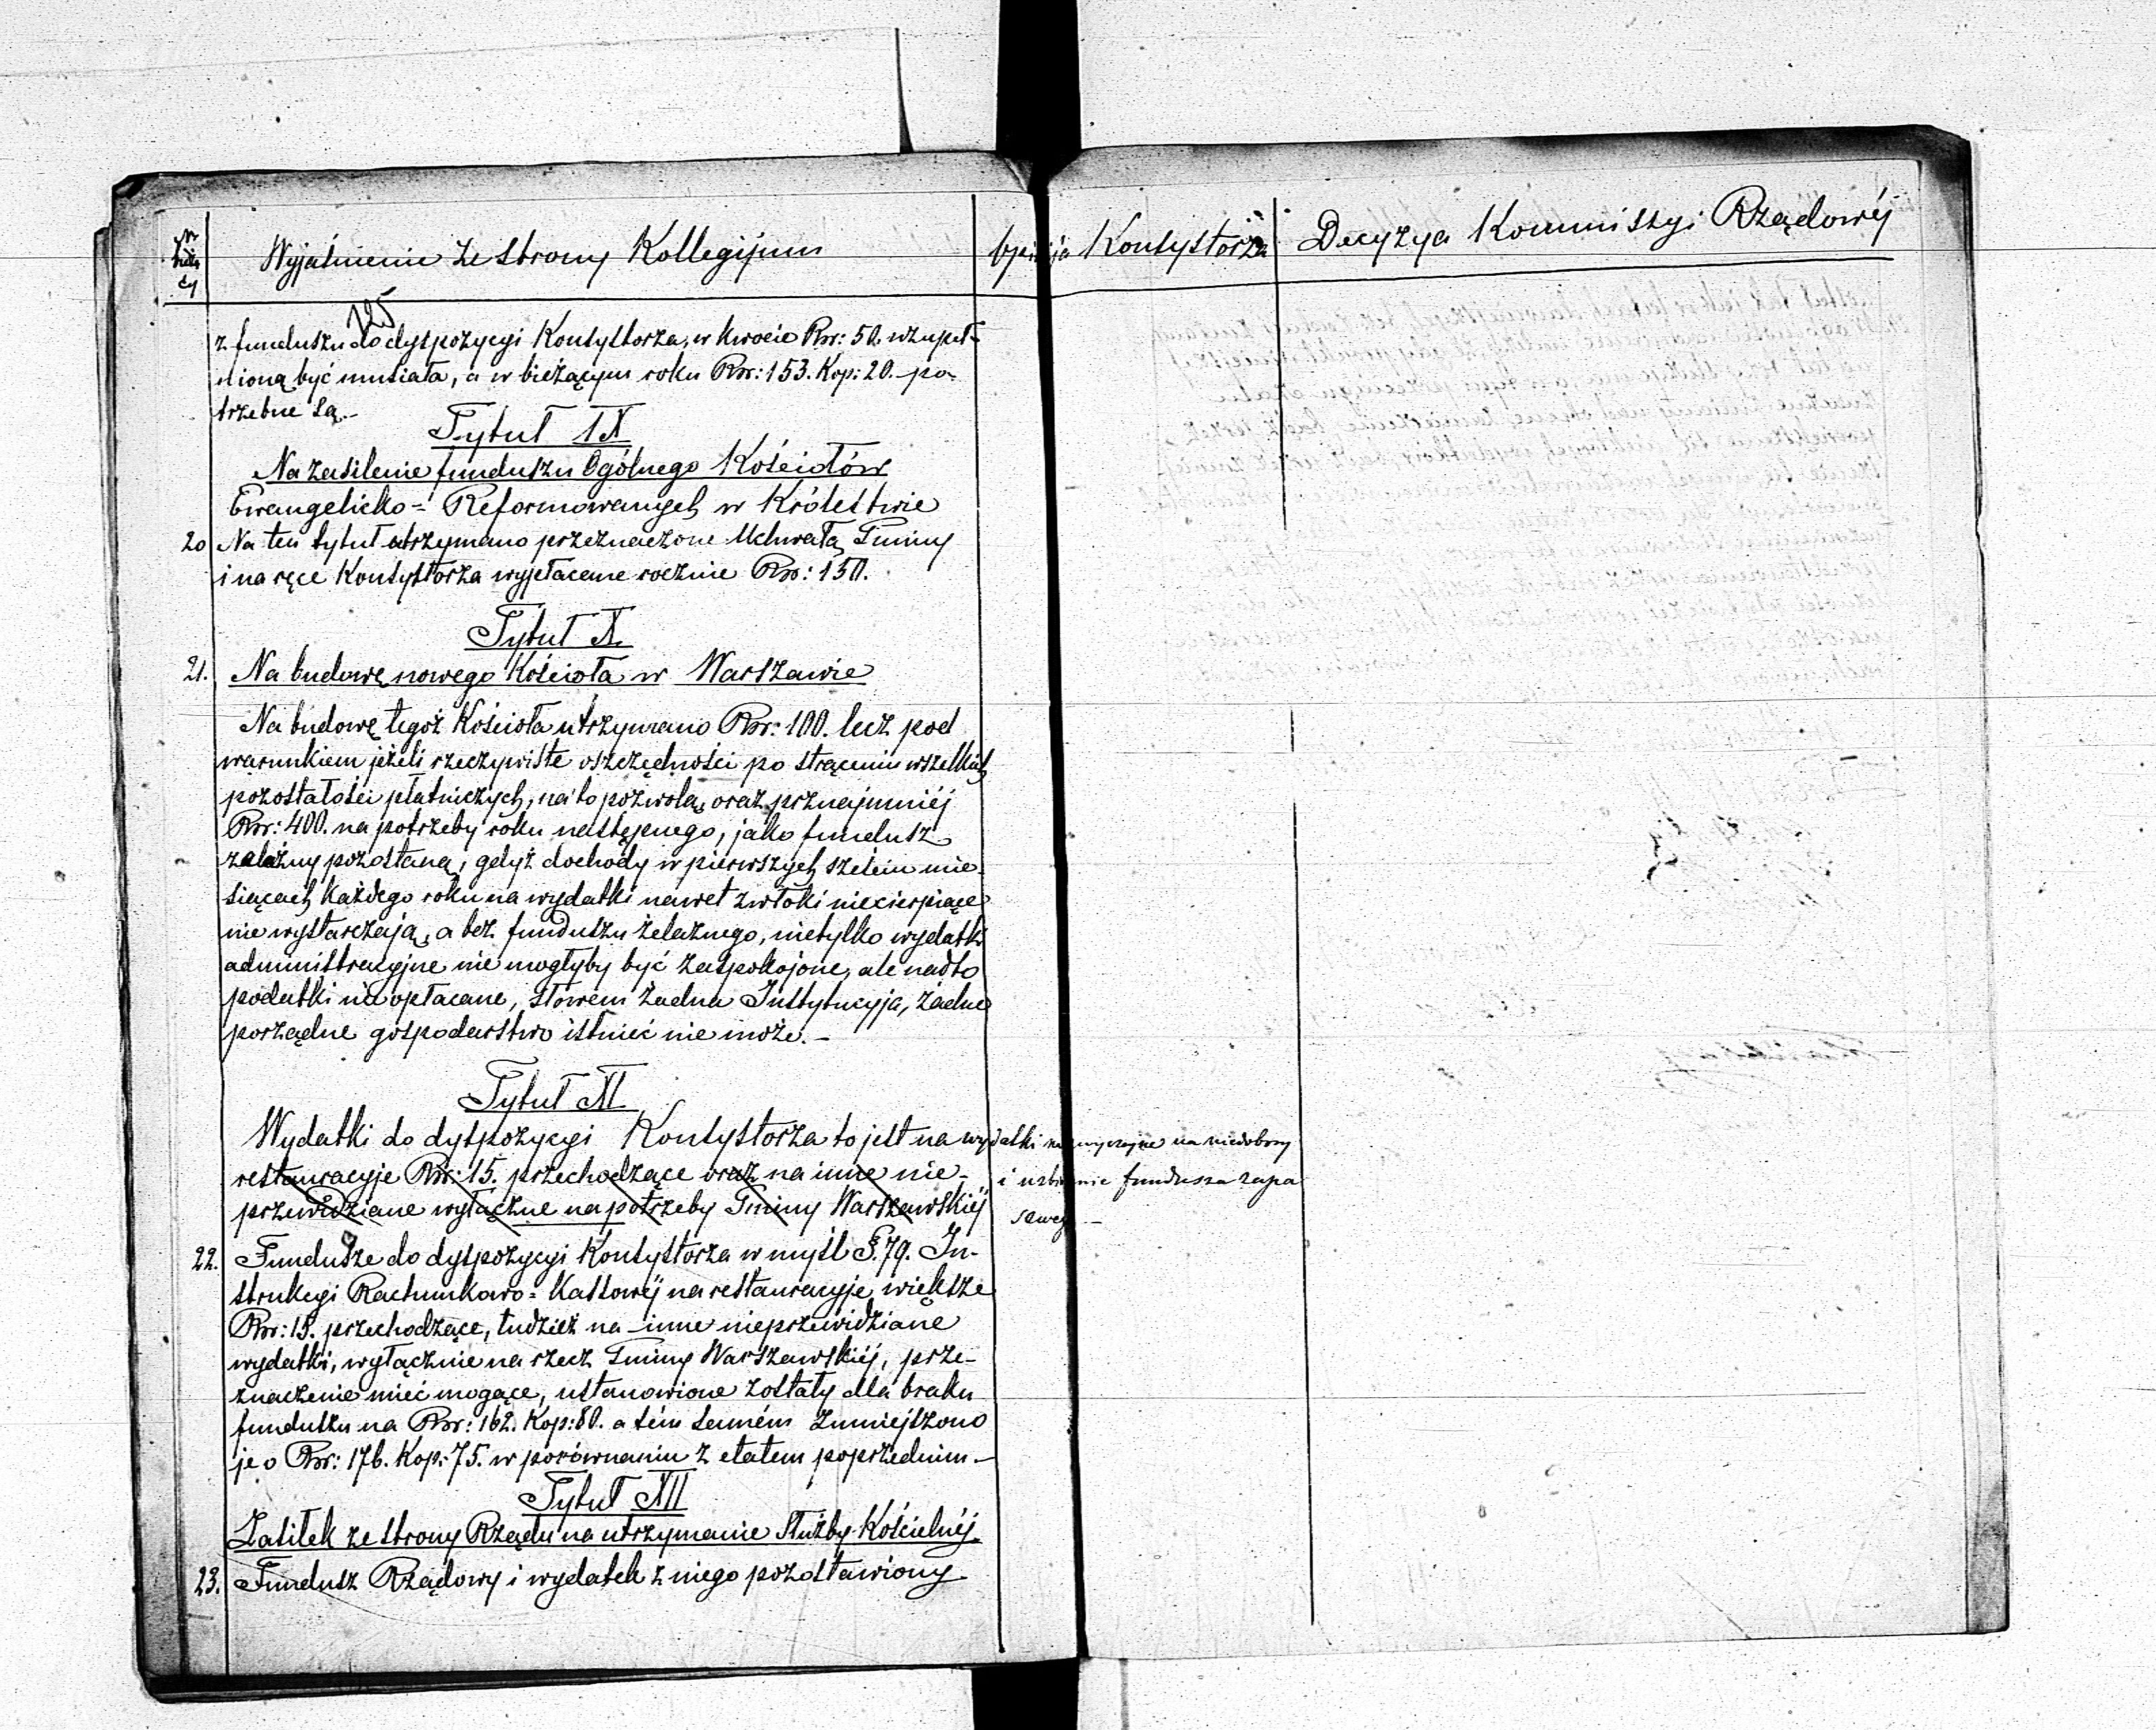 Nr bieżą cy
Wyjaśnienie ze strony Kollegijum
Opinija Konsystorza
Decyzya Kommissyi Rządowéj
z funduszu do dyspozycyi Konsystorza, w kwocie Rsr: 50. uzupeł-
nioną być musiała, a w bieżącym roku Rsr: 153. Kop: 20. po-
trzebne są.-
Tytuł IX
Na zasilenie funduszu Ogólnego Kościołów
Ewangelicko= Reformowanych w Królestwie
20 Na ten tytuł utrzymano przeznaczone Uchwałą Gminy
i na ręce Konsystorza wypłacane rocznie Rsr: 150.
Tytuł X.
21. Na budowę nowego Kościoła w Warszawie
Na budowę tegoż Kościoła utrzymano Rsr: 100. lecz pod
warunkiem jeżeli rzeczywiste oszczędności po strąceniu wszelkich
pozostałości płatniczych, na to pozwolą, oraz przynajmniéj
Rsr: 400. na potrzeby roku następnego, jako fundusz
żelazny pozostaną, gdyż dochody w pierwszych sześciu mie-
siącach każdego roku na wydatki nawet zwłoki niecierpiące
nie wystarczają, a bez funduszu żelaznego, nietylko wydatki
administracyjne nie mogłyby być zaspokojone, ale nadto
podatki nie opłacane, słowem żadna Instytucyja, żadne
porządne gospodarstwo istnieć nie może.-
Tytuł XI
Wydatki do dyspozycyi Konsystorza to jest na wydatki nadzwyczajne na niedobory
i uzbieranie funduszu zapa
sowego -
restauracyje Rsr: 15. przechodzące oraz na inne nie-
przewidziane wyłącznie na potrzeby Gminy Warszawskiéj
22. Fundusze do dyspozycyi Konsystorza w myśl §. 79. In-
strukcyi Rachunkowo= Kassowéj na restauracyje większe
Rsr: 15. przechodzące, tudzież na inne nieprzewidziane
wydatki, wyłącznie na rzecz Gminy Warszawskiéj, prze-
znaczenie mieć mogące, ustanowione zostały dla braku
funduszu na Rsr: 162. Kop: 80. a tém samém zmniejszono
je o Rsr: 176. Kop: 75. w porównaniu z etatem poprzednim-
Tytuł XII
Zasiłek ze strony Rządu na utrzymanie Służby Kościelnéj.
23. Fundusz Rządowy i wydatek z niego pozostawiony